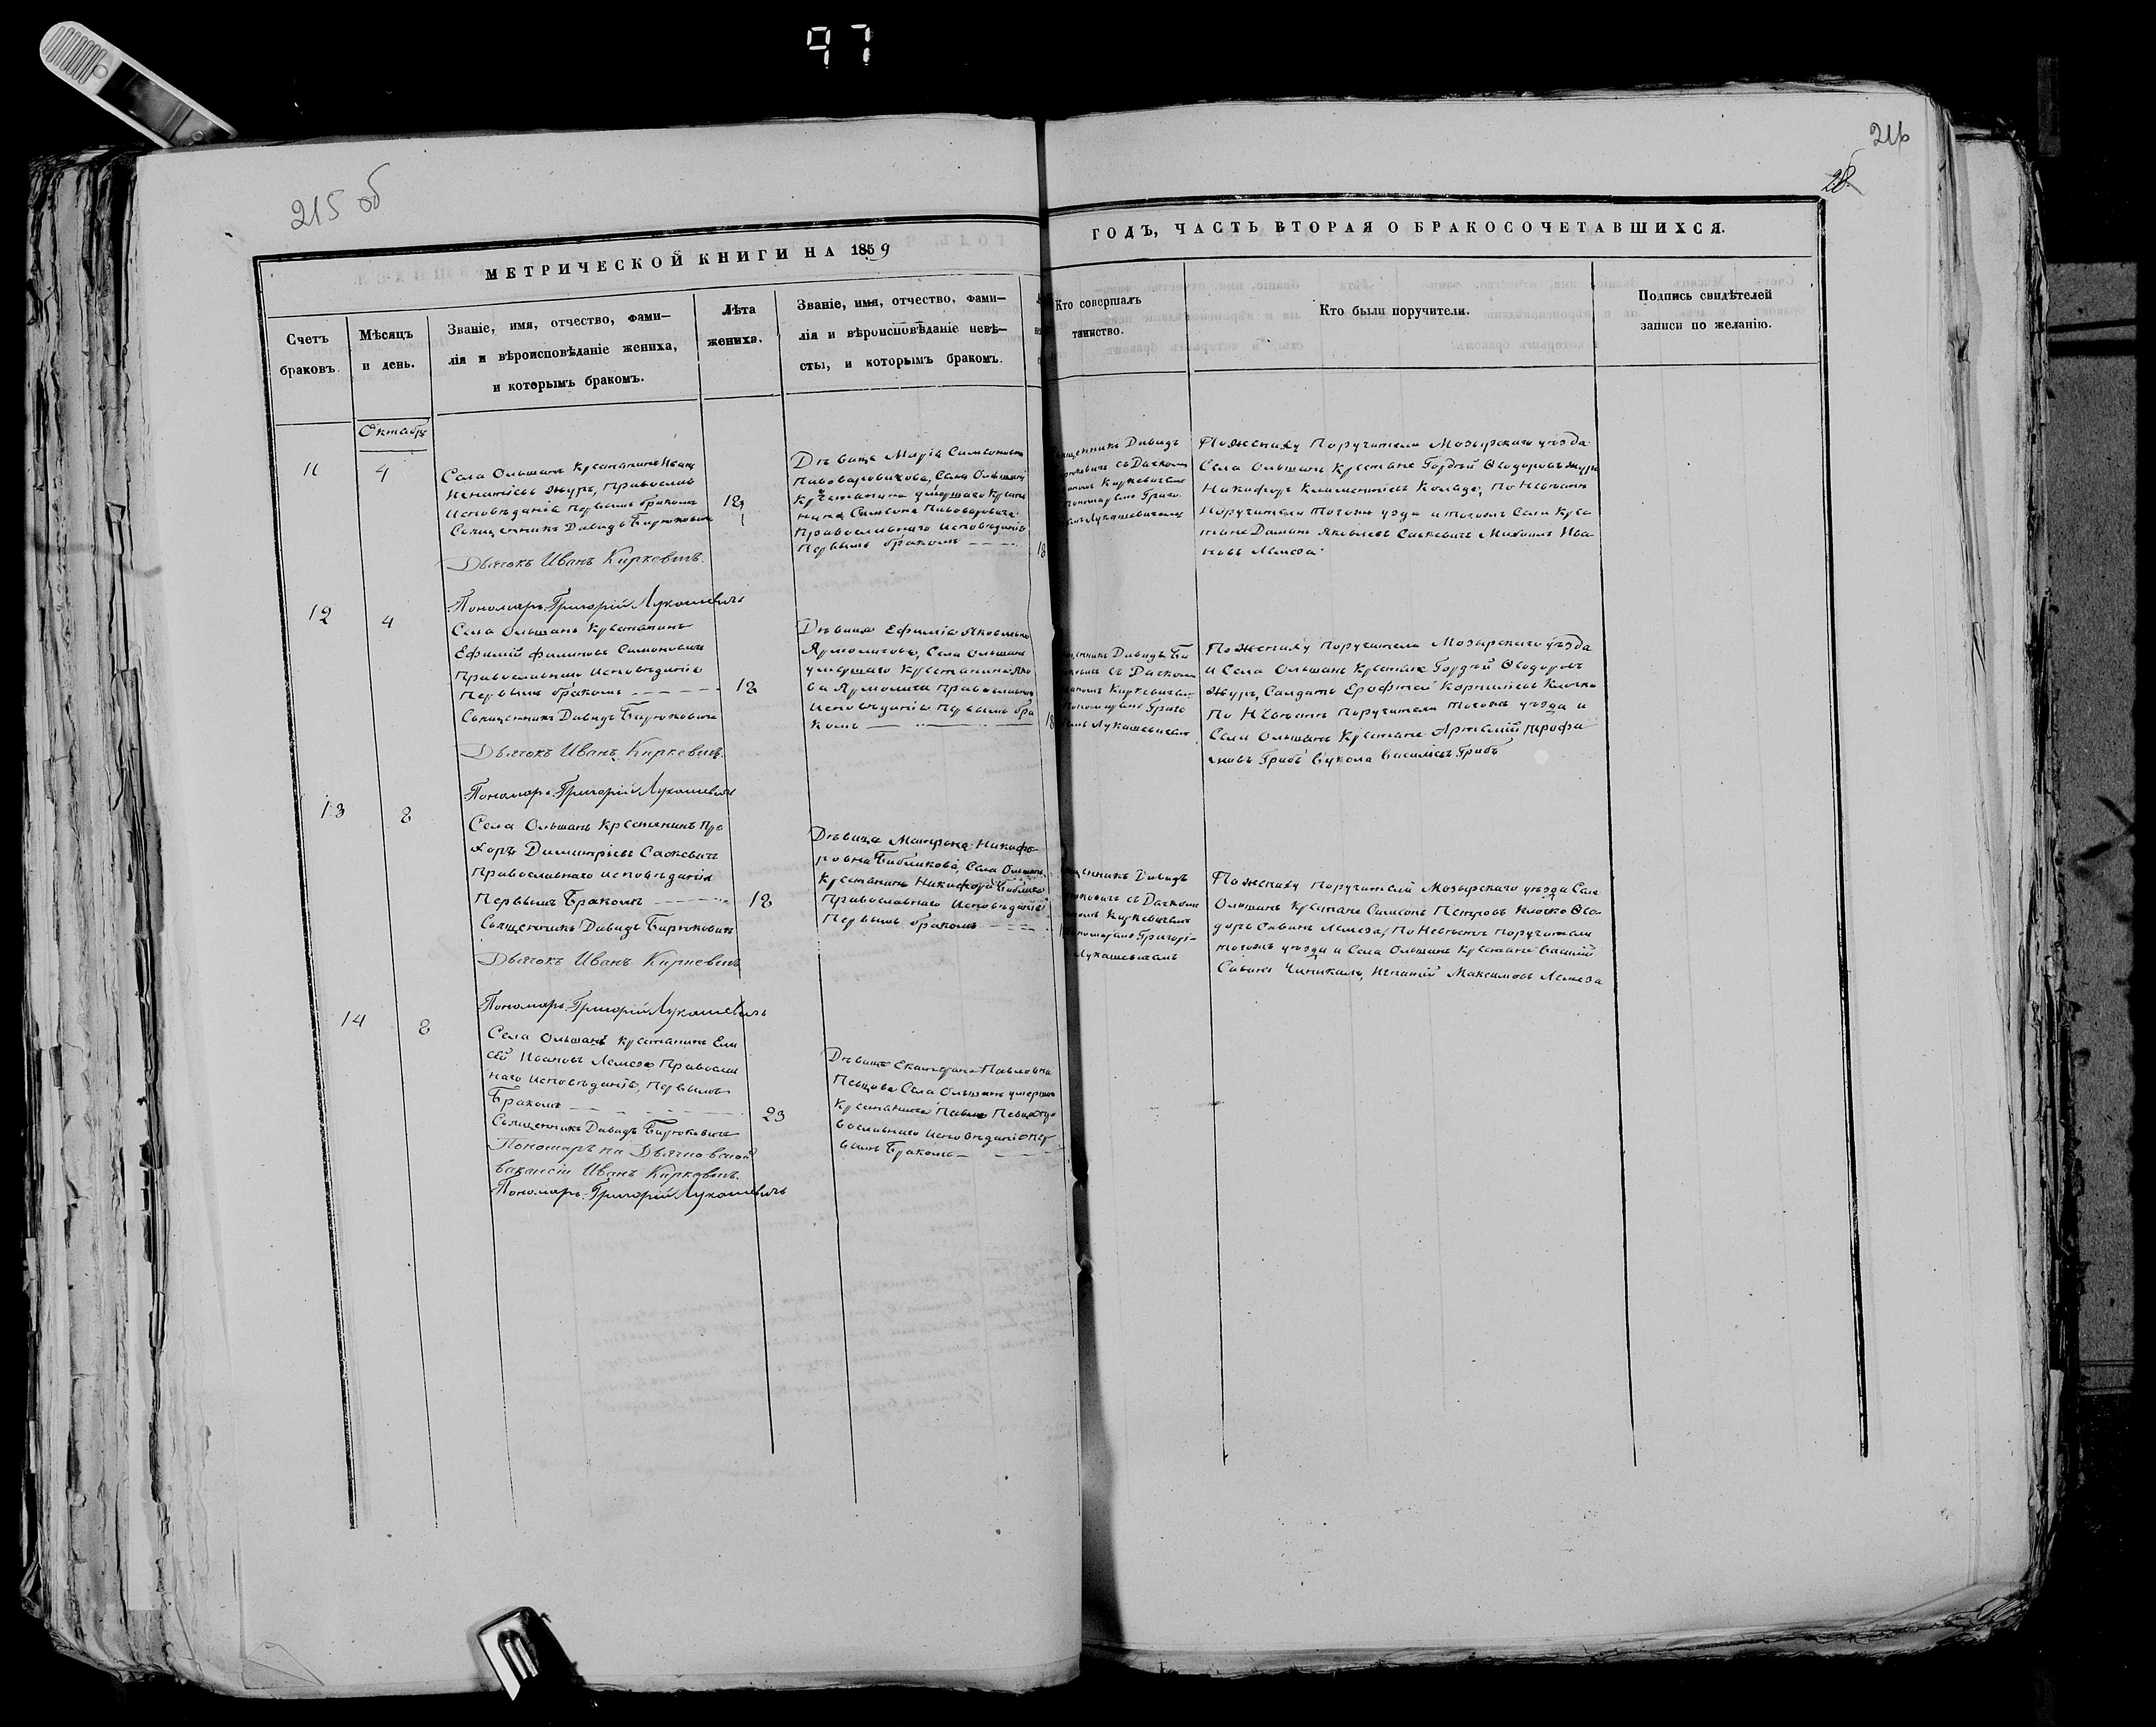 97
215 об
216
28
МЕТРИЧЕСКОЙ КНИГИ НА 1859
ГОДЪ, ЧАСТЬ ВТОРАЯ О БРАКОСОЧЕТАВШИХСЯ.
Счетъ
браковъ.
Мѣсяцъ
и день.
Званіе, имя, отчество, фами—
лія и вѣроисповѣданіе жениха,
и которымъ бракомъ.
Лѣта
жениха.
Званіе, имя, отчество, фами—
лія и вѣроисповѣданіе невѣ—
сты, и которымъ бракомъ.
Кто совершалъ
таинство.
Кто были поручители.
Подпись свидѣтелей
записи по желанію.
Октабря
11
4
Села Ольшанъ Крестанинъ Иванъ
Игнатіевъ Журъ, Православ
Исповѣданія первымъ бракомъ
Священникъ Давидъ Бирюковичъ
Дьячокъ Иванъ Киркевичъ.
Пономарь Григорій Лукашевичъ
Дѣвица Марія Симеоновна
Пивоваровичова, Села Ольшанъ
Крестанина умершаго Креста
нина Симеона Пивоваровича
Православнаго Исповѣданія
Первымъ бракомъ
18
Священникъ Давидъ
Бирюковичъ съ Дачкомъ
Иваномъ Киркевичемъ
Пономаремъ Григо
Лукашевичемъ
По жениху Поручители Мозырскаго уѣзда
Села Ольшанъ Крестане Гордѣй Ѳеодоровъ Журъ
Никифоръ Климентіевъ по Невѣстѣ
Поручители тогожъ уѣзда и тогожъ Села Крес
тане Даміанъ Яковлевъ Саскевичъ Михаилъ Ива
новъ Лемеза.
12
4
Села Ольшанъ Крестанинъ
Ефимій Филиповъ Симоновичъ
Православнаго Исповѣданія
Первымъ бракомъ
18
Священникъ Давидъ Бирюковичъ
Дьячокъ Иванъ Киркевичъ.
Пономарь Григорій Лукашевичъ
Дѣвица Ефимія Яковлевна
Ярмоличова, Села Ольшанъ
умершаго Крестанина Яко
ва Ярмолича Православнаго
Исповѣданія первымъ бра
комъ
18
Давидъ Би
съ Дачкомъ
Киркевичемъ
Пономаремъ Григо
Лукашевичемъ
По жениху Поручители Мозырскаго уѣзда
и Села Ольшанъ Крестане Гордѣй Ѳеодоровъ
Журъ, Салдатъ Ерофтей Корниліевъ Клочко
По Невѣстѣ Поручители тогожъ уѣзда и
Села Ольшанъ Крестане Артемій Трофи
мовъ Грибъ Вукола Василіевъ Грибъ
13
8
Села Ольшанъ Крестанинъ Про
хоръ Димитріевъ Саскевичъ
Православнаго исповѣданія
Первымъ Бракомъ
18
Священникъ Давидъ Бирюковичъ
Дьячокъ Иванъ Киркевичъ
Пономарь Григорій Лукашевичъ
Дѣвица Матрона Никифо
ровна Библикова, Села Ольшанъ
Крестанина Никифора Библика
Православнаго Исповѣданія
Первымъ бракомъ
Давидъ
съ Дачкомъ
Киркевичемъ
Пономаремъ Григорі-
Лукашевичемъ
По жениху Поручители Мозырскаго уѣзда Села
Ольшанъ Крестане Симеонъ Петровъ Клочко Ѳео
доръ Савинъ Лемеза, По Невѣстѣ поручители
тогожъ уѣзда и Села Ольшанъ Крестане Василій
Савинъ Чиникало, Игнатій Максимовъ Лемеза
14
8
Села Ольшанъ Крестанинъ Ели
сей Ивановъ Лемеза Православ
наго Исповѣданія, Первымъ
Бракомъ
23
Священникъ Давидъ Бирюковичъ
Пономаръ на Дьячковской
вакансіи Иванъ Киркевичъ.
Пономарь Григорій Лукашевичъ
Дѣвица Екатерина Павловна
Певцова Села Ольшанъ умершаго
Крестанина Павла Певца Пра
вославнаго Исповѣданія пер
вымъ Бракомъ